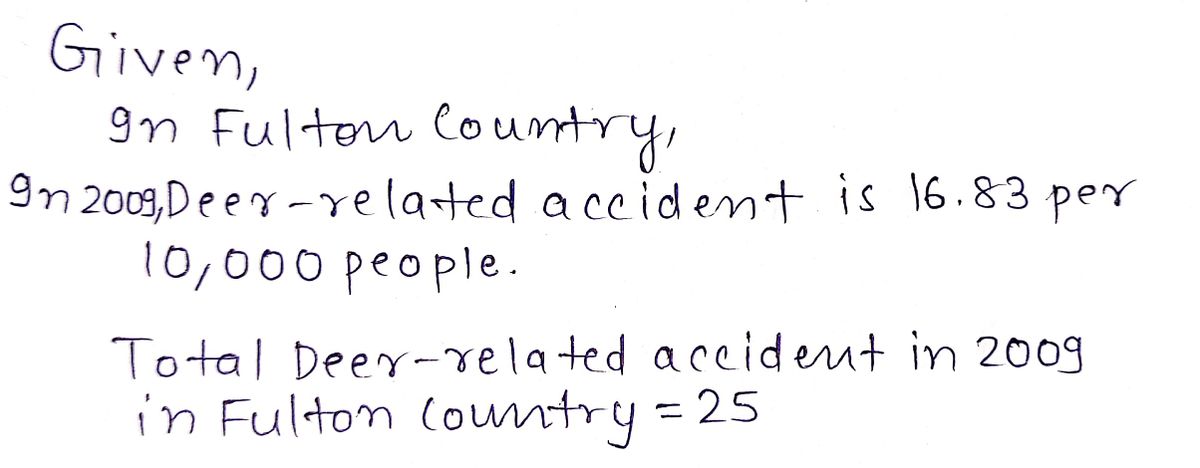 Given,
In Fulton Country,
In 2009, Deer-related accident is 16.83 per
10,000 people.
Total Deer-related accident in 2009
in Fulton Country = 25